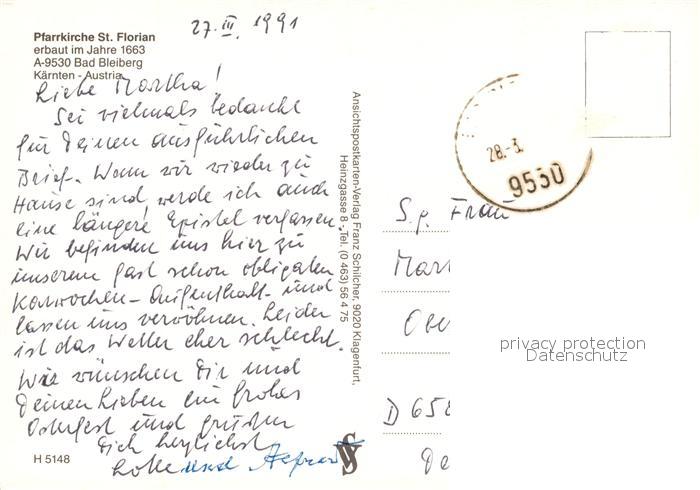 27. III. 1991
Pfarrkirche St. Florian
erbaut im Jahre 1663
A-9530 Bad Bleiberg
Kärnten - Austria
Liebe Martha!
Sei vielmals bedankt
für Deinen ausführlichen
Brief. Wenn wir wieder zu
Hause sind, werde ich auch
eine längere Epistel verfassen.
Wir befinden uns hier zu
unserem fast schon obligaten
Karwochen-Aufenthalt und
lassen uns verwöhnen. Leider
ist das Wetter eher schlecht.
Wir wünschen Dir und
Deinen Lieben ein frohes
Osterfest und grüßen
Dich herzlichst
Lotte und
H 5148
Ansichtspostkarten-Verlag Franz Schilcher, 9020 Klagenfurt,
Heinzgasse 8 - Tel. (0 463) 56 4 75
28.-3.
9530
S.g. Frau
Mar
Obe
D 658
privacy protection
Datenschutz